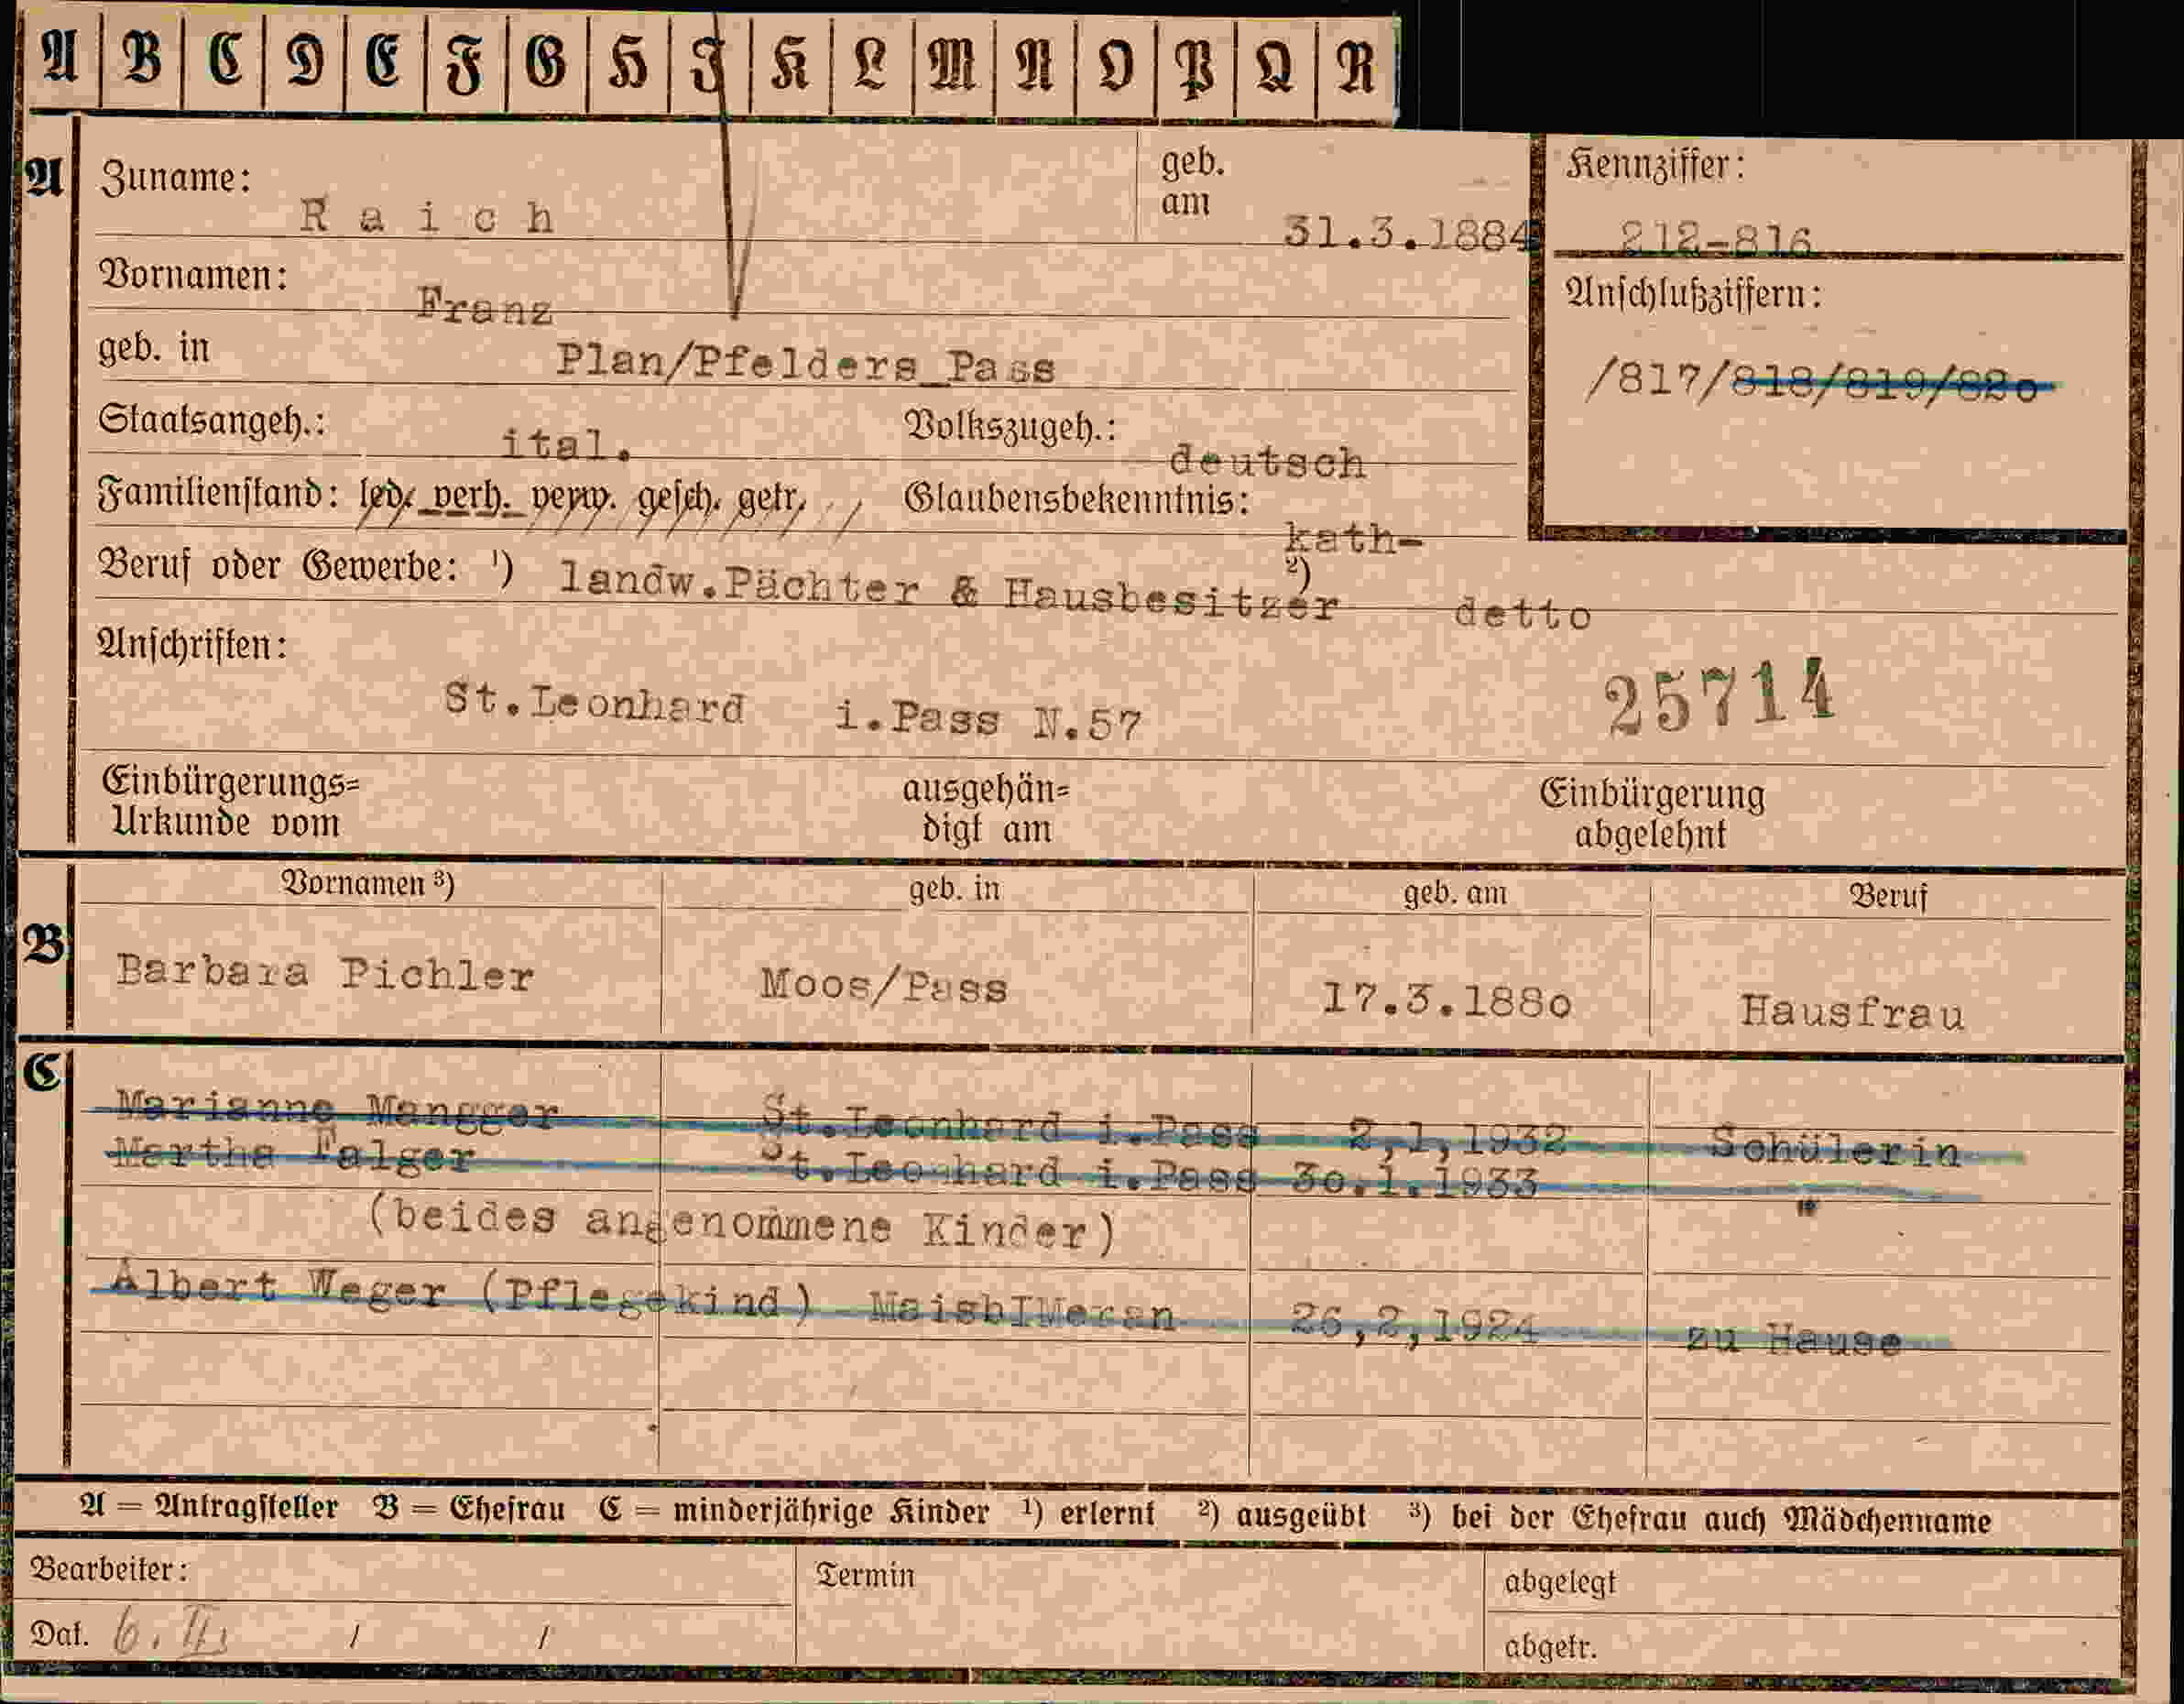 A B C D E F G H I K L M N O P Q R
A Zuname: Raich geb. am 31.3.1884
Kennziffer: 212-816
Vornamen: Franz
Anschlußziffern: /817/818/819/82o
geb. in Plan/Pfelders Pass
Staatsangeh.: ital. Volkszugeh.: deutsch
Familienstand: led. verh. verw. gesch. getr. Glaubensbekenntnis: kath-
Beruf oder Gewerbe: ¹) landw.Pächter & Hausbesitzer ²) detto
Anschriften:
St.Leonhard i.Pass N.57
25714
Einbürgerungs= Urkunde vom ausgehän= digt am Einbürgerung abgelehnt
B Vornamen ³) geb. in geb. am Beruf
Barbara Pichler Moos/Pass 17.3.188o Hausfrau
C
Marianne Mangger St.Leonhard i.Pass 2,1,1932 Schülerin
Martha Falger St.Leonhard i.Pass 3o.1.1933 "
(beides angenommene Kinder)
Albert Weger (Pflegekind) 26,2,1924 zu Hause
A = Antragsteller B = Ehefrau C = minderjährige Kinder ¹) erlernt ²) ausgeübt ³) bei der Ehefrau auch Mädchenname
Bearbeiter: Termin abgelegt
Dat. 6. II. / / abgetr.